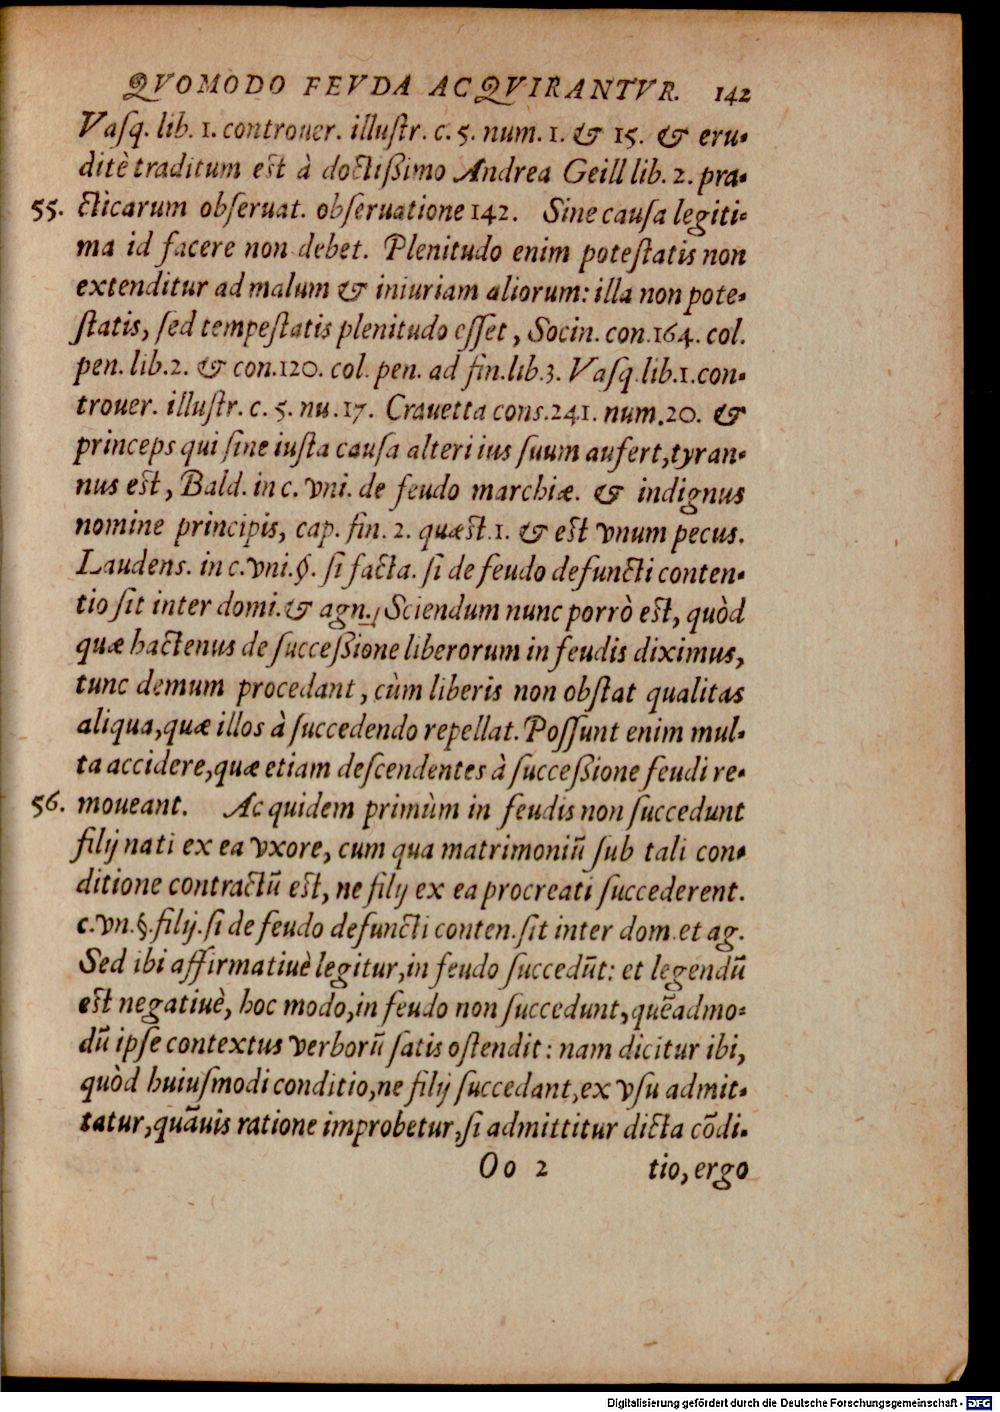 QVOMODO FEVDA ACQVIRANTVR. 142
Vaſq. lib. 1. controuer. illuſtr. c. 5. num. 1. & 15. & eru-
ditè traditum eſt à doctiſſimo Andrea Geill lib. 2. pra-
55. cticarum obſeruat. obſeruatione 142. Sine cauſa legiti-
ma id facere non debet. Plenitudo enim poteſtatis non
extenditur ad malum & iniuriam aliorum: illa non pote-
ſtatis, ſed tempeſtatis plenitudo eſſet, Socin. con. 164. col.
pen. lib. 2. & con. 120. col. pen. ad fin. lib. 3. Vaſq. lib. 1. con-
trouer. illuſtr. c. 5. nu. 17. Crauetta cons. 241. num. 20. &
princeps qui ſine iuſta cauſa alteri ius ſuum aufert, tyran-
nus eſt, Bald. in c. vni. de feudo marchiæ. & indignus
nomine principis, cap. fin. 2. quæst. 1. & eſt vnum pecus.
Laudens. in c. vni. §. ſi facta. ſi de feudo defuncti conten-
tio ſit inter domi. & agn. Sciendum nunc porrò eſt, quòd
quæ hactenus de ſucceſſione liberorum in feudis diximus,
tunc demum procedant, cùm liberis non obſtat qualitas
aliqua, quæ illos à ſuccedendo repellat. Poſſunt enim mul-
ta accidere, quæ etiam deſcendentes à ſucceſſione feudi re-
56. moueant. Ac quidem primùm in feudis non ſuccedunt
filij nati ex ea vxore, cum qua matrimoniũ ſub tali con-
ditione contractũ eſt, ne filij ex ea procreati ſuccederent.
c. vn. §. filij. ſi de feudo defuncti conten. ſit inter dom. et ag.
Sed ibi affirmatiuè legitur, in feudo ſuccedũt: et legendũ
eſt negatiuè, hoc modo, in feudo non ſuccedunt, quẽadmo-
dũ ipſe contextus verborũ ſatis oſtendit: nam dicitur ibi,
quòd huiuſmodi conditio, ne filij ſuccedant, ex vſu admit-
tatur, quãuis ratione improbetur, ſi admittitur dicta cõdi-
Oo 2 tio, ergo
Digitalisierung gefördert durch die Deutsche Forschungsgemeinschaft - DFG